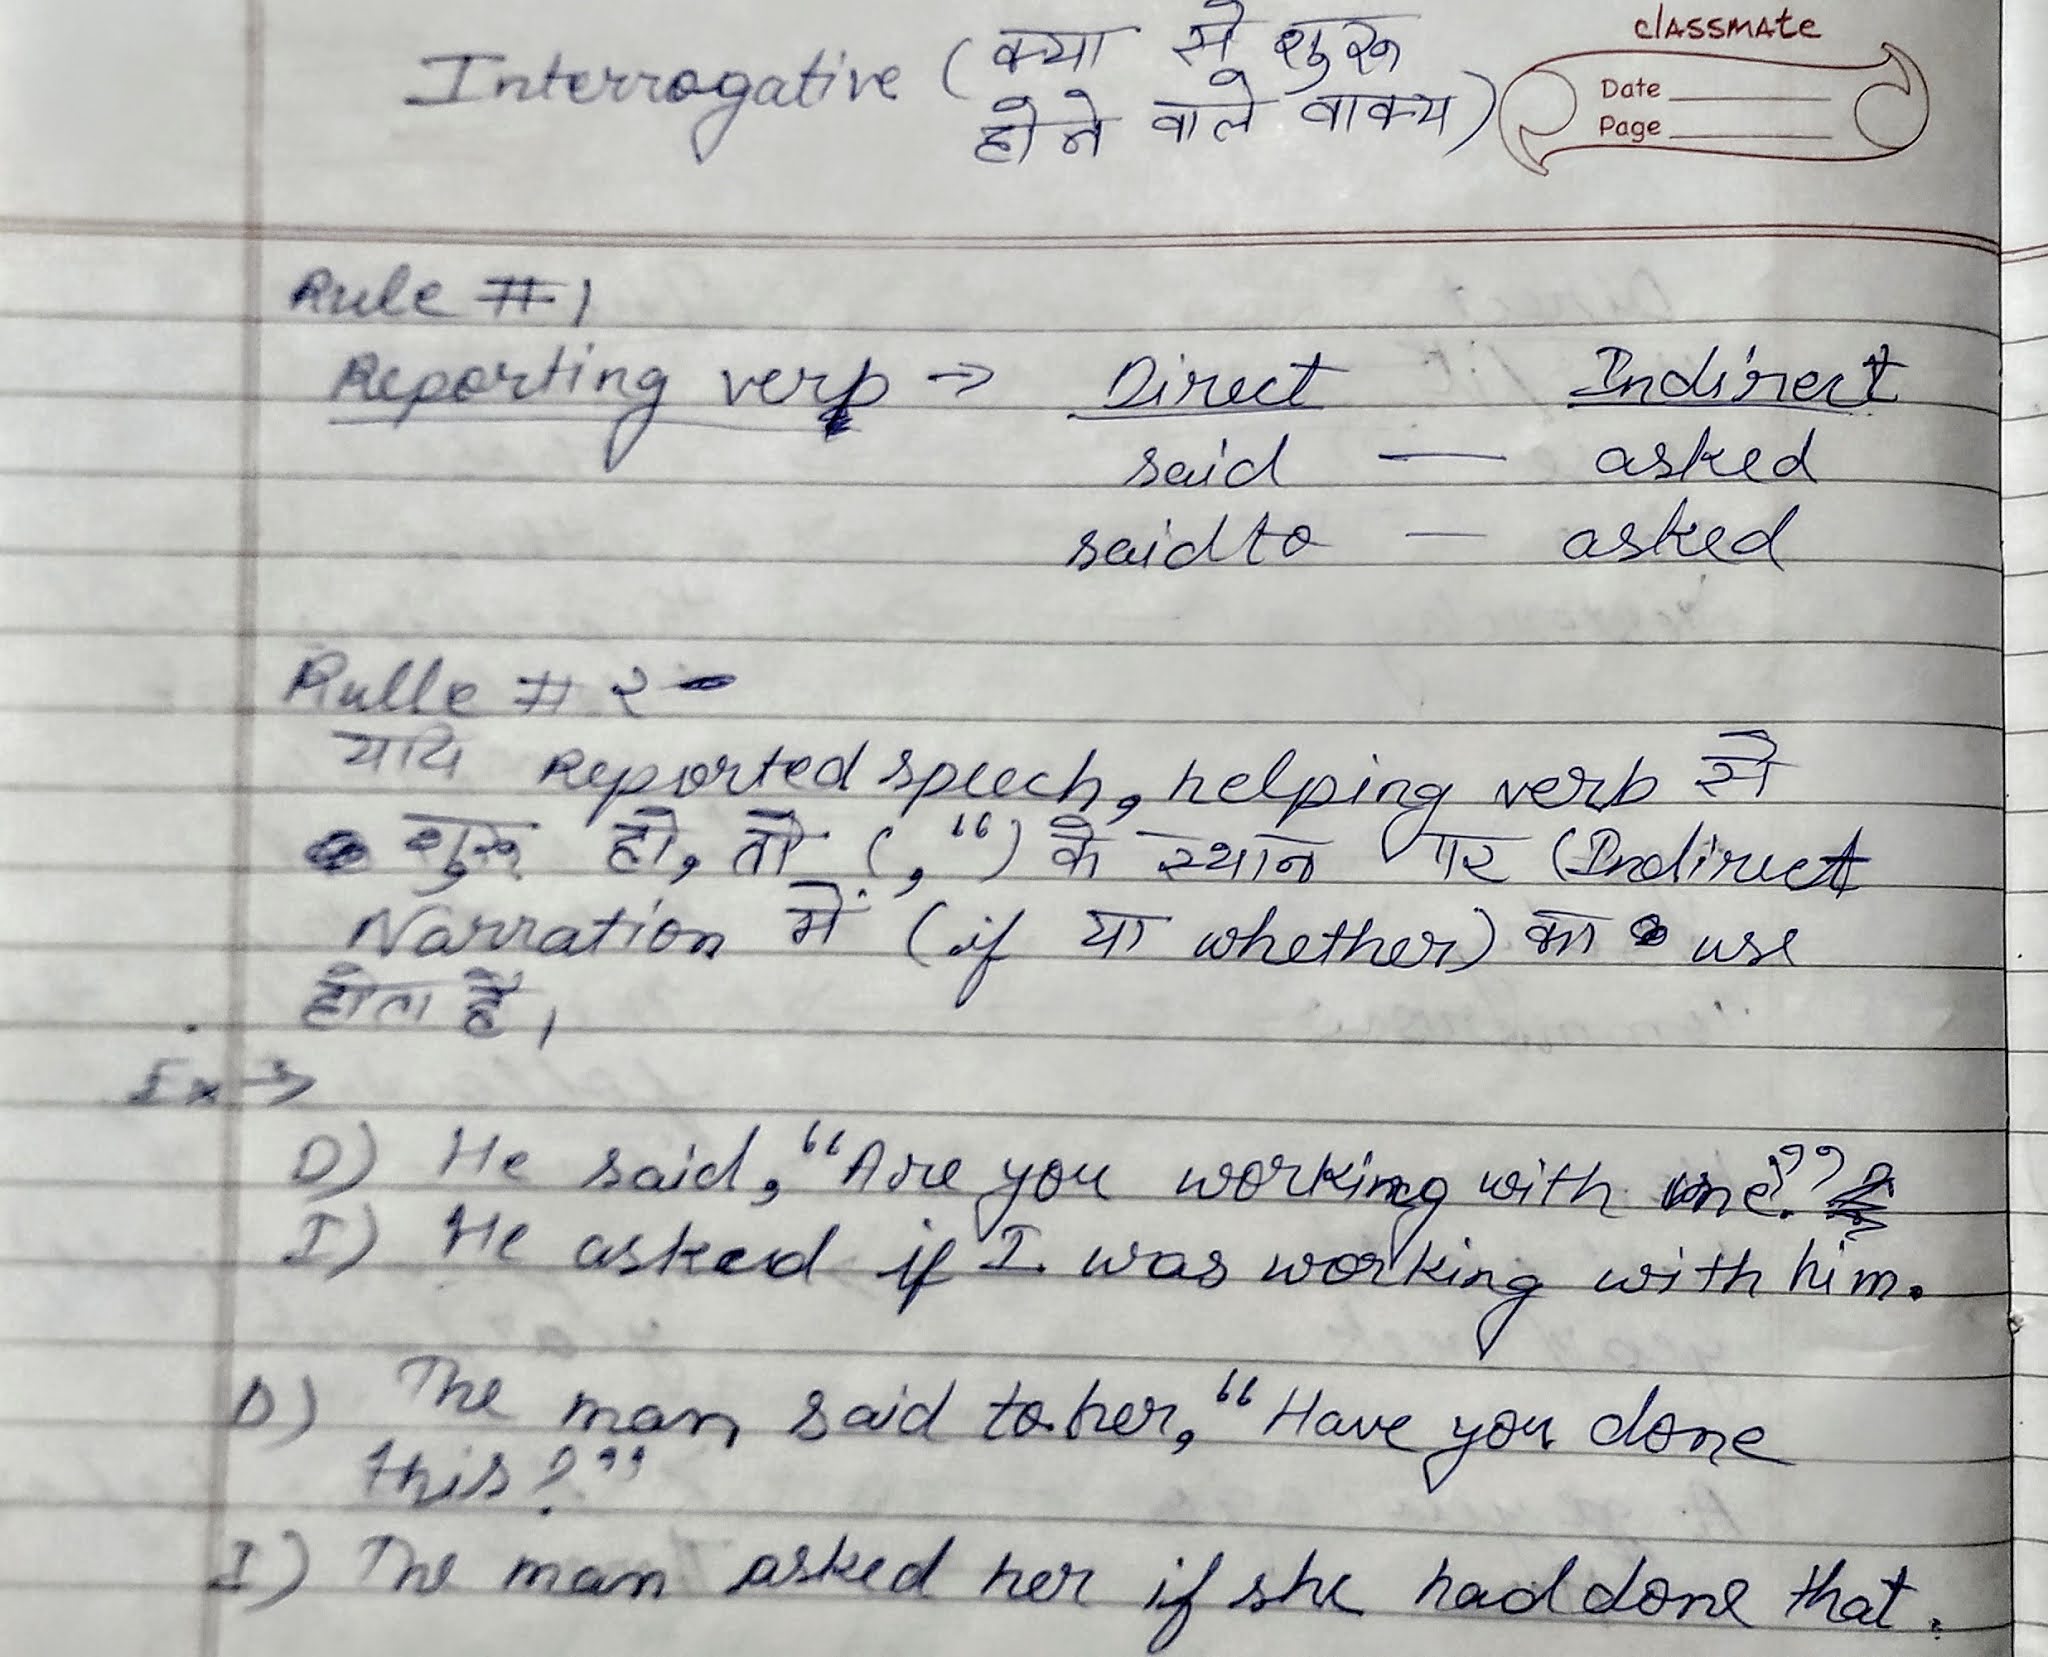 classmate
Date
Page
Interrogative (क्या से शुरू
होने वाले वाक्य)
Rule #1
Reporting verb → Direct Indirect
said — asked
said to — asked
Rulle # 2-
यदि Reported speech, helping verb से
शुरू हो, तो (, “) के स्थान पर (Indirect
Narration में (if या whether) का use
होता है,
Ex →
D) He said, “Are you working with me?”
I) He asked if I was working with him.
D) The man said to her, “Have you done
this?”
I) The man asked her if she had done that.